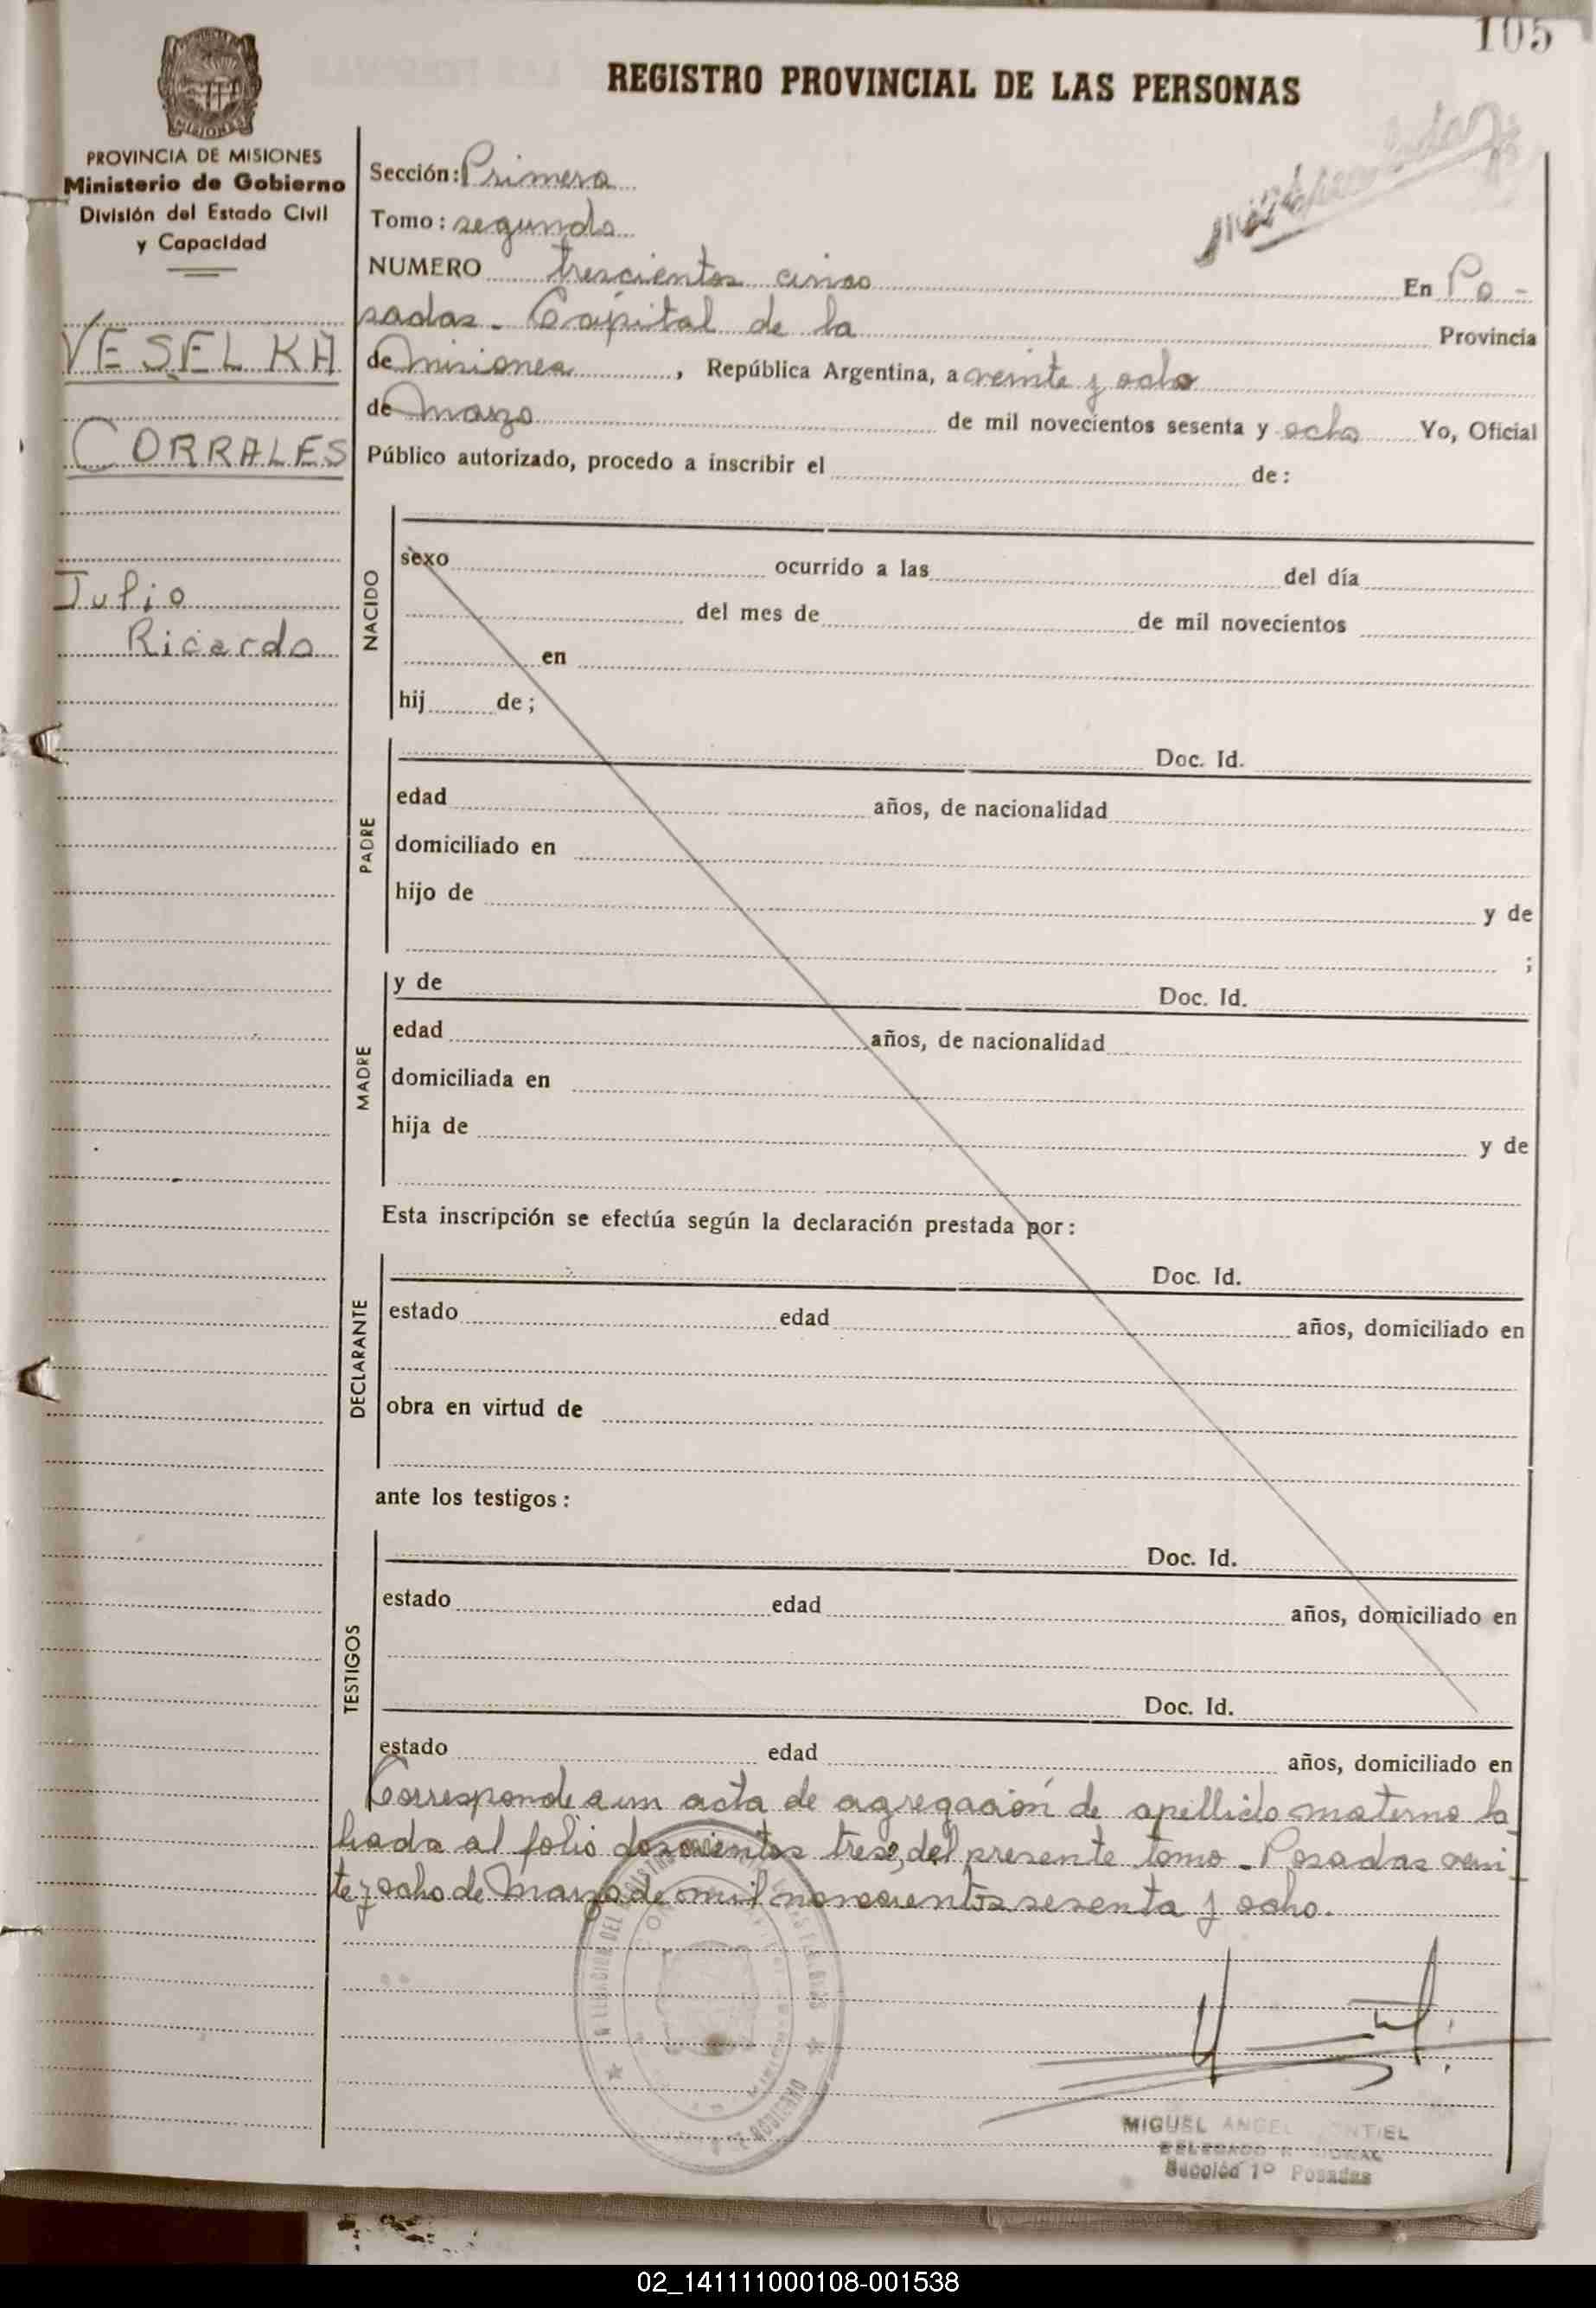 105
REGISTRO PROVINCIAL DE LAS PERSONAS
PROVINCIA DE MISIONES
Ministerio de Gobierno
División del Estado Civil
y Capacidad
VESELKA
CORRALES
Julio
Ricardo
Sección: Primera
Tomo: segundo
NUMERO trescientos cinco En Po-
sadas. Capital de la Provincia
de misiones, República Argentina, a veinte y ocho
de marzo de mil novecientos sesenta y ocho Yo, Oficial
Público autorizado, procedo a inscribir el de:
NACIDO
sexo ocurrido a las del día
del mes de de mil novecientos
en
hij de;
PADRE
Doc. Id.
edad años, de nacionalidad
domiciliado en
hijo de y de
;
MADRE
y de Doc. Id.
edad años, de nacionalidad
domiciliada en
hija de y de
Esta inscripción se efectúa según la declaración prestada por:
DECLARANTE
Doc. Id.
estado edad años, domiciliado en
obra en virtud de
ante los testigos:
TESTIGOS
Doc. Id.
estado edad años, domiciliado en
Doc. Id.
estado edad años, domiciliado en
Corresponde a un acta de agregación de apellido materno la
brada al folio doscientos trece, del presente tomo. Posadas vein
te y ocho de Marzo de mil novecientos sesenta y ocho.
MIGUEL ANGEL
DELEGADO
Sección 1º Posadas
02_141111000108-001538